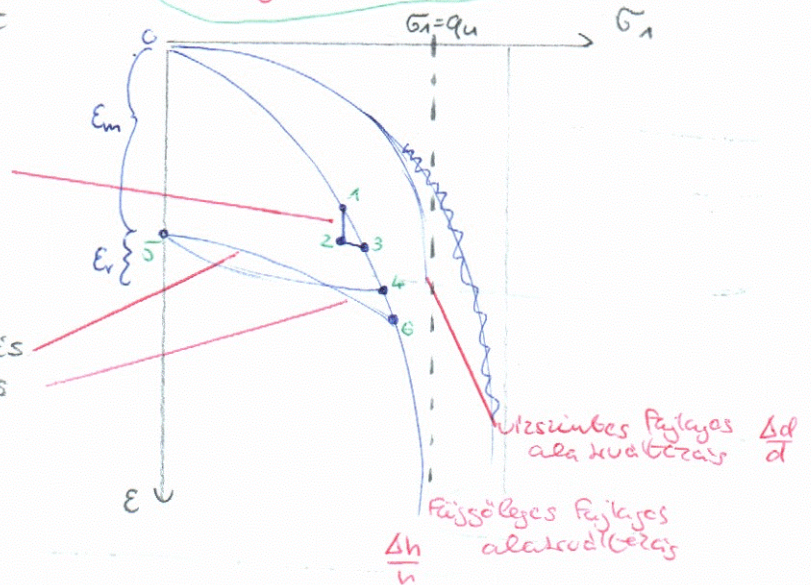 σ₁=qu
σ₁
0
εm
1
2
3
εr
5
4
6
és
s
vízszintes fajlagos
alakváltozás
Δd/d
ε
Függőleges fajlagos
alakváltozás
Δh/h